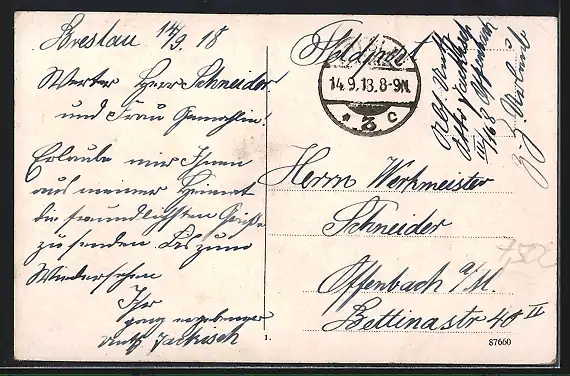 Breslau 14/9. 18
Werter Herr Schneider!
und Frau Gemahlin!
Erlaube mir Ihnen
aus meiner Heimat
die freundlichsten Grüße
zu senden bis zum
Wiedersehen
Ihr
ganz ergebener
Jackisch
Feldpost
14.9.18.8-9N.
* 3 c
Otto Jackisch
III/168 Offenbach
z. Z.
Herrn Werkmeister
Schneider
Offenbach a/M.
Bettinastr 48 II
1.
S7660